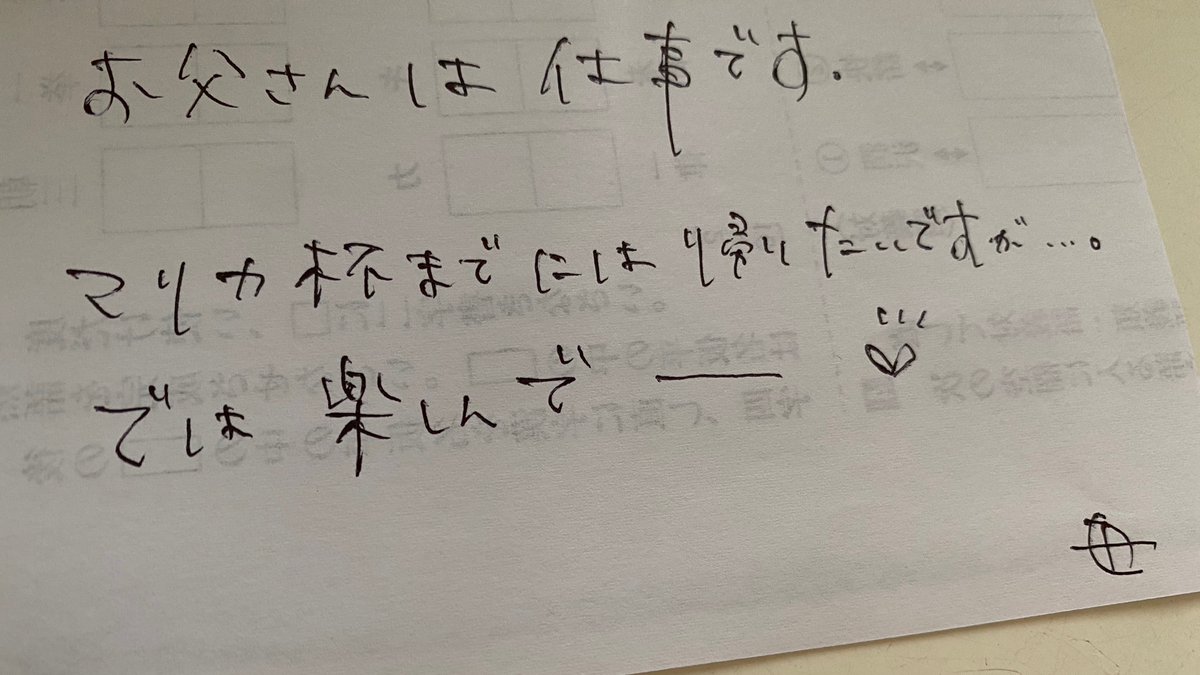 お父さんは仕事です.
マリカ杯までには帰りたいですが…。
では楽しんで ー ♡
母